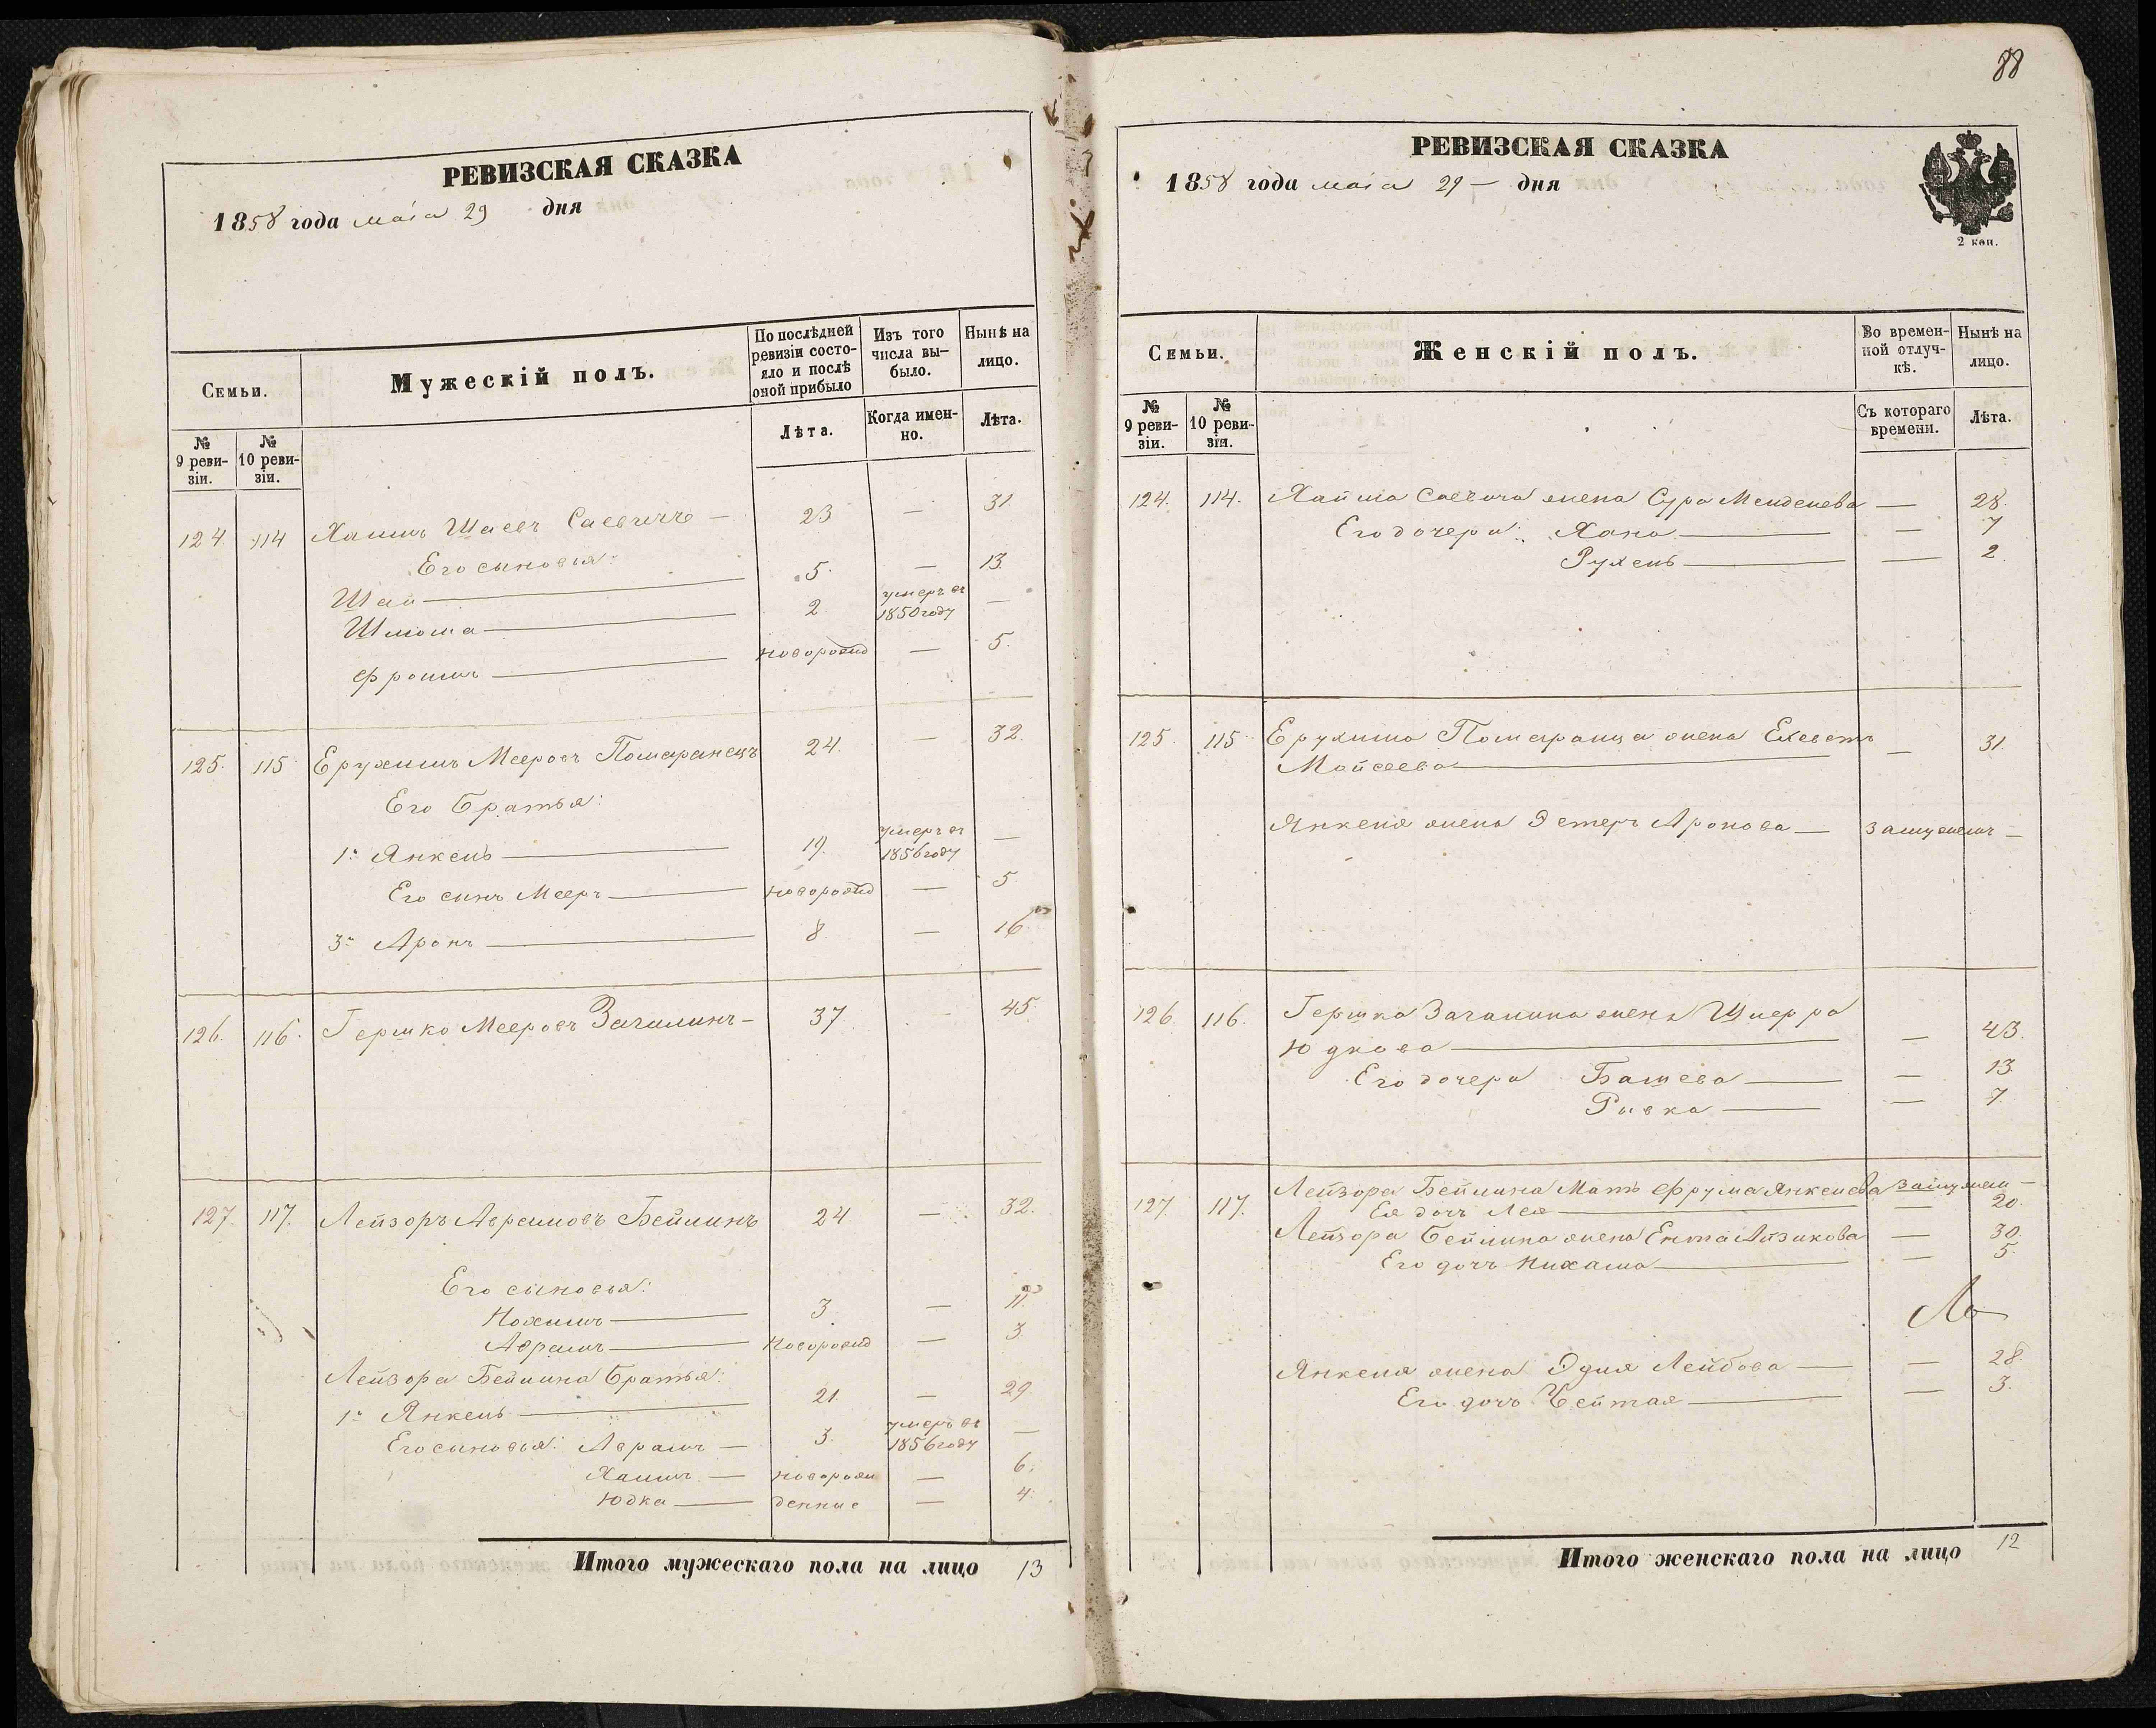 РЕВИЗСКАЯ СКАЗКА
1858 года маія 29 дня
Семьи.
Мужескій полъ.
По послѣдней ревизіи состояло и послѣ оной прибыло
Изъ того числа выбыло.
Нынѣ на лицо.
№ 9 ревизіи.
№ 10 ревизіи.
Лѣта.
Когда именно.
Лѣта.
124 114 Хаимъ Шаевъ Саевичъ — 23 — 31
Его сыновья:
Шая — 5. — 13.
Шлюма — 2 умеръ въ 1850 году —
Фроимъ — новорожд — 5.
125. 115 Ерухимъ Мееровъ Померанецъ 24. — 32.
Его братья:
1й Янкель — 19. умеръ въ 1856 году —
Его сынъ Мееръ — новорожд — 5.
3й Аронъ — 8. — 16
126. 116. Гершко Мееровъ Зачалинъ — 37 — 45.
127. 117. Лейзоръ Аврамовъ Бейлинъ 24 — 32.
Его сыновья:
Нохимъ — 3. — 11.
Аврамъ — новорожд — 3.
Лейзора Бейлина братья:
1й Янкель — 21. — 29.
Его сыновья: Аврамъ — 3. умеръ въ 1856 году —
Хаимъ — новорож — 6.
Юдка — денные — 4.
Итого мужескаго пола на лицо 13
88
РЕВИЗСКАЯ СКАЗКА
1858 года маія 29 — дня
2 коп.
Семьи.
Женскій полъ.
Во временной отлучкѣ.
Нынѣ на лицо.
№ 9 ревизіи.
№ 10 ревизіи.
Съ котораго времени.
Лѣта.
124. 114. Хаима Саевича жена Сура Менделева — 28.
Его дочери: Хана — — 7
Рухель — — 2.
125 115 Ерухима Померанца жена Елеветъ
Мойсеева — — 31.
Янкеля жена Эстеръ Аронова — замужемъ —
126. 116. Гершка Зачалина жена Шперра
Юдкова — — 43.
Его дочери Башева — — 13.
Ривка — — 7.
127. 117. Лейзора Бейлина мать Фрума Янкелева замужем —
Ея дочь Лея — — 20.
Лейзора Бейлина жена Ента Айзикова — 30.
Его дочь Нихама — — 5.
Янкеля жена Эдля Лейбова — — 28.
Его дочь Чейтая — — 3.
Итого женскаго пола на лицо 12